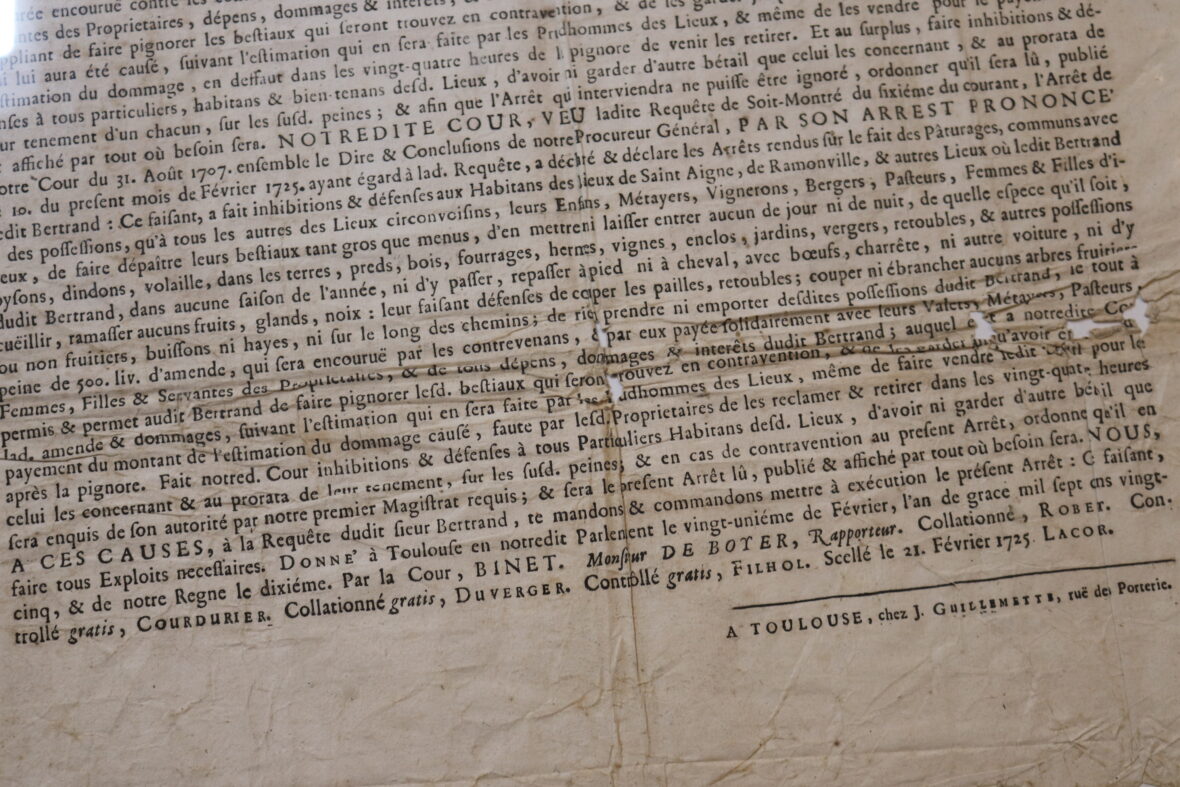 rée encouruë contre les
ntes des Proprietaires, dépens, dommages & interêts,
ppliant de faire pignorer les bestiaux qui seront trouvez en contravention, & de les
i lui aura été causé, suivant l'estimation qui en sera faite par les Prudhommes des Lieux, & même de les vendre pour le
stimation du dommage, en deffaut dans les vingt-quatre heures de la pignore de venir les retirer. Et au surplus, faire inhibitions & dé-
nses à tous particuliers, habitans & bien-tenans desd. Lieux, d'avoir ni garder d'autre bétail que celui les concernant, & au prorata de
ur tenement d'un chacun, sur les susd. peines; & afin que l'Arrêt qui interviendra ne puisse être ignoré, ordonner qu'il sera lû, publié
affiché par tout où besoin sera. NOTREDITE COUR, VEU ladite Requête de Soit-Montré du sixiéme du courant, l'Arrêt de
otre Cour du 31. Août 1707. ensemble le Dire & Conclusions de notre Procureur Général, PAR SON ARREST PRONONCE'
10. du present mois de Février 1725. ayant égard à lad. Requête, a déclaré & déclare les Arrêts rendus sur le fait des Pâturages, communs avec
edit Bertrand : Ce faisant, a fait inhibitions & défenses aux Habitans des lieux de Saint Aigne, de Ramonville, & autres Lieux où ledit Bertrand
des possessions, qu'à tous les autres des Lieux circonvoisins, leurs Enfans, Métayers, Vignerons, Bergers, Pasteurs, Femmes & Filles d'i-
eux, de faire dépaître leurs bestiaux tant gros que menus, d'en mettre ni laisser entrer aucun de jour ni de nuit, de quelle espece qu'il soit,
oysons, dindons, volaille, dans les terres, preds, bois, fourrages, hernes, vignes, enclos, jardins, vergers, retoubles, & autres possessions
dudit Bertrand, dans aucune saison de l'année, ni d'y passer, repasser à pied ni à cheval, avec bœufs, charrête, ni autre voiture, ni d'y
cuëillir, ramasser aucuns fruits, glands, noix : leur faisant défenses de couper les pailles, retoubles; couper ni ébrancher aucuns arbres fruitiers
ou non fruitiers, buissons ni hayes, ni sur le long des chemins; de rien prendre ni emporter desdites possessions dudit Bertrand, le tout à
peine de 500. liv. d'amende, qui sera encouruë par les contrevenans, & par eux payée solidairement avec leurs Valets, Métayers, Pasteurs,
Femmes, Filles & Servantes des Proprietaires, & de tous dépens, dommages & interêts dudit Bertrand; auquel a notredite Co
permis & permet audit Bertrand de faire pignorer lesd. bestiaux qui seront trouvez en contravention, & de les garder jusqu'avoir
lad. amende & dommages, suivant l'estimation qui en sera faite par les Prudhommes des Lieux, même de faire vendre ledit bétail pour le
payement du montant de l'estimation du dommage causé, faute par lesd. Proprietaires de les reclamer & retirer dans les vingt-quatre heures
après la pignore. Fait notred. Cour inhibitions & défenses à tous Particuliers Habitans desd. Lieux, d'avoir ni garder d'autre bétail que
celui les concernant & au prorata de leur tenement, sur les susd. peines; & en cas de contravention au present Arrêt, ordonne qu'il en
sera enquis de son autorité par notre premier Magistrat requis; & sera le present Arrêt lû, publié & affiché par tout où besoin sera. NOUS,
A CES CAUSES, à la Requête dudit sieur Bertrand, te mandons & commandons mettre à exécution le présent Arrêt : C faisant,
faire tous Exploits necessaires. DONNE' à Toulouse en notredit Parlement le vingt-uniéme de Février, l'an de grace mil sept ens vingt-
cinq, & de notre Regne le dixiéme. Par la Cour, BINET. Monsieur DE BOYER, Rapporteur. Collationné, ROBER. Con-
trollé gratis, COURDURIER. Collationné gratis, DUVERGER. Controllé gratis, FILHOL. Scellé le 21. Février 1725. LACOR.
A TOULOUSE, chez J. GUILLEMETTE, ruë des Porterie.